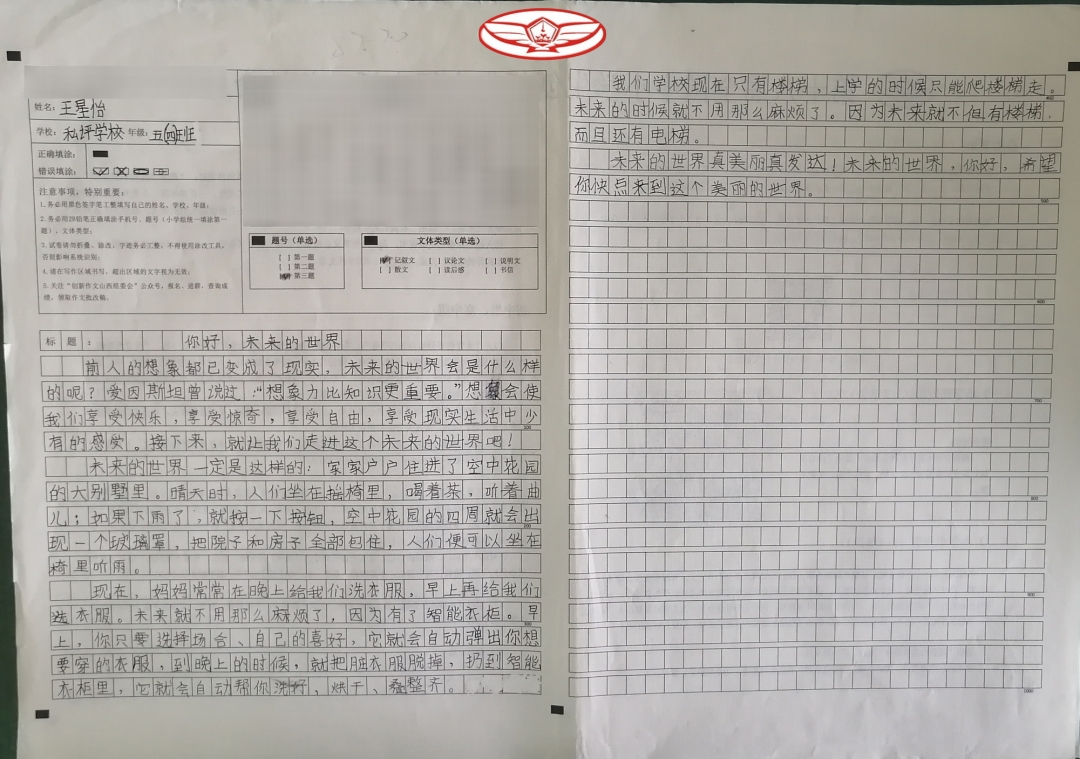 姓名：王星怡
学校：私坪学校 年级：五(四)班
正确填涂：
错误填涂：
注意事项，特别重要：
1.务必用黑色签字笔工整填写自己的姓名、学校、年级；
2.务必用2B铅笔正确填涂手机号、题号（小学组统一填涂第一
题）、文体类型；
3.试卷请勿折叠、涂改，字迹务必工整，不得使用涂改工具，
否则影响系统识别；
4.请在写作区域书写，超出区域的文字视为无效；
5.关注“创新作文山西组委会”公众号，报名、进群、查询成
绩，领取作文批改稿。
题号（单选）
[ ] 第一题
[ ] 第二题
第三题
文体类型（单选）
记叙文 [ ] 议论文 [ ] 说明文
[ ] 散文 [ ] 读后感 [ ] 书信
标题：你好，未来的世界
前人的想象都已变成了现实，未来的世界会是什么样
的呢？爱因斯坦曾说过：“想象力比知识更重要。”想象会使
我们享受快乐，享受惊奇，享受自由，享受现实生活中少
有的感受。接下来，就让我们走进这个未来的世界吧！
未来的世界一定是这样的：家家户户住进了空中花园
的大别墅里。晴天时，人们坐在摇椅里，喝着茶，听着曲
儿；如果下雨了，就按一下按钮，空中花园的四周就会出
现一个玻璃罩，把院子和房子全部包住，人们便可以坐在
椅里听雨。
现在，妈妈常常在晚上给我们洗衣服，早上再给我们
选衣服。未来就不用那么麻烦了，因为有了智能衣柜。早
上，你只要选择场合、自己的喜好，它就会自动弹出你想
要穿的衣服，到晚上的时候，就把脏衣服脱掉，扔到智能
衣柜里，它就会自动帮你洗好、烘干、叠整齐。
我们学校现在只有楼梯，上学的时候只能爬楼梯走。
未来的时候就不用那么麻烦了。因为未来就不但有楼梯，
而且还有电梯。
未来的世界真美丽真发达！未来的世界，你好，希望
你快点来到这个美丽的世界。